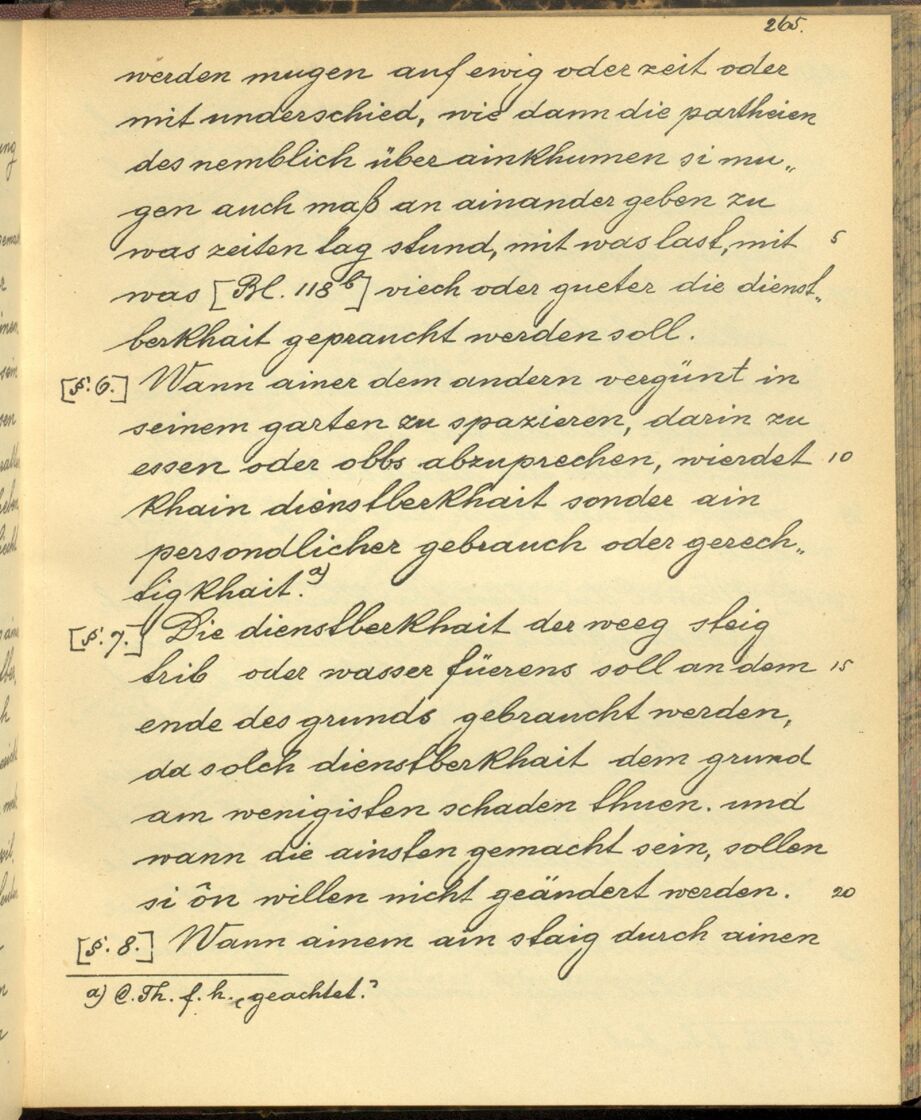 265.
werden mugen auf ewig oder zeit oder
mit underschied, wie dann die partheien
des nemblich über ainkhumen si mu„
gen auch maß an ainander geben zu
was zeiten tag stund, mit was last, mit 5
was [Bl. 118b] viech oder gueter die dienst„
berkhait gepraucht werden soll.
[§. 6.] Wann ainer dem andern vergünt in
seinem garten zu spazieren, darin zu
essen oder obbs abzuprechen, wierdet 10
khain dienstberkhait sonder ain
persondlicher gebrauch oder gerech„
tigkhait. a)
[§. 7.] Die dienstberkhait der weeg steig
trib oder wasser füerens soll an dem 15
ende des grunds gebraucht werden,
da solch dienstberkhait dem grund
am wenigisten schaden thuen. und
wann die ainsten gemacht sein, sollen
si ôn willen nicht geändert werden. 20
[§. 8.] Wann ainem ain staig durch ainen
a) C. Th. f. h. „geachtet.“